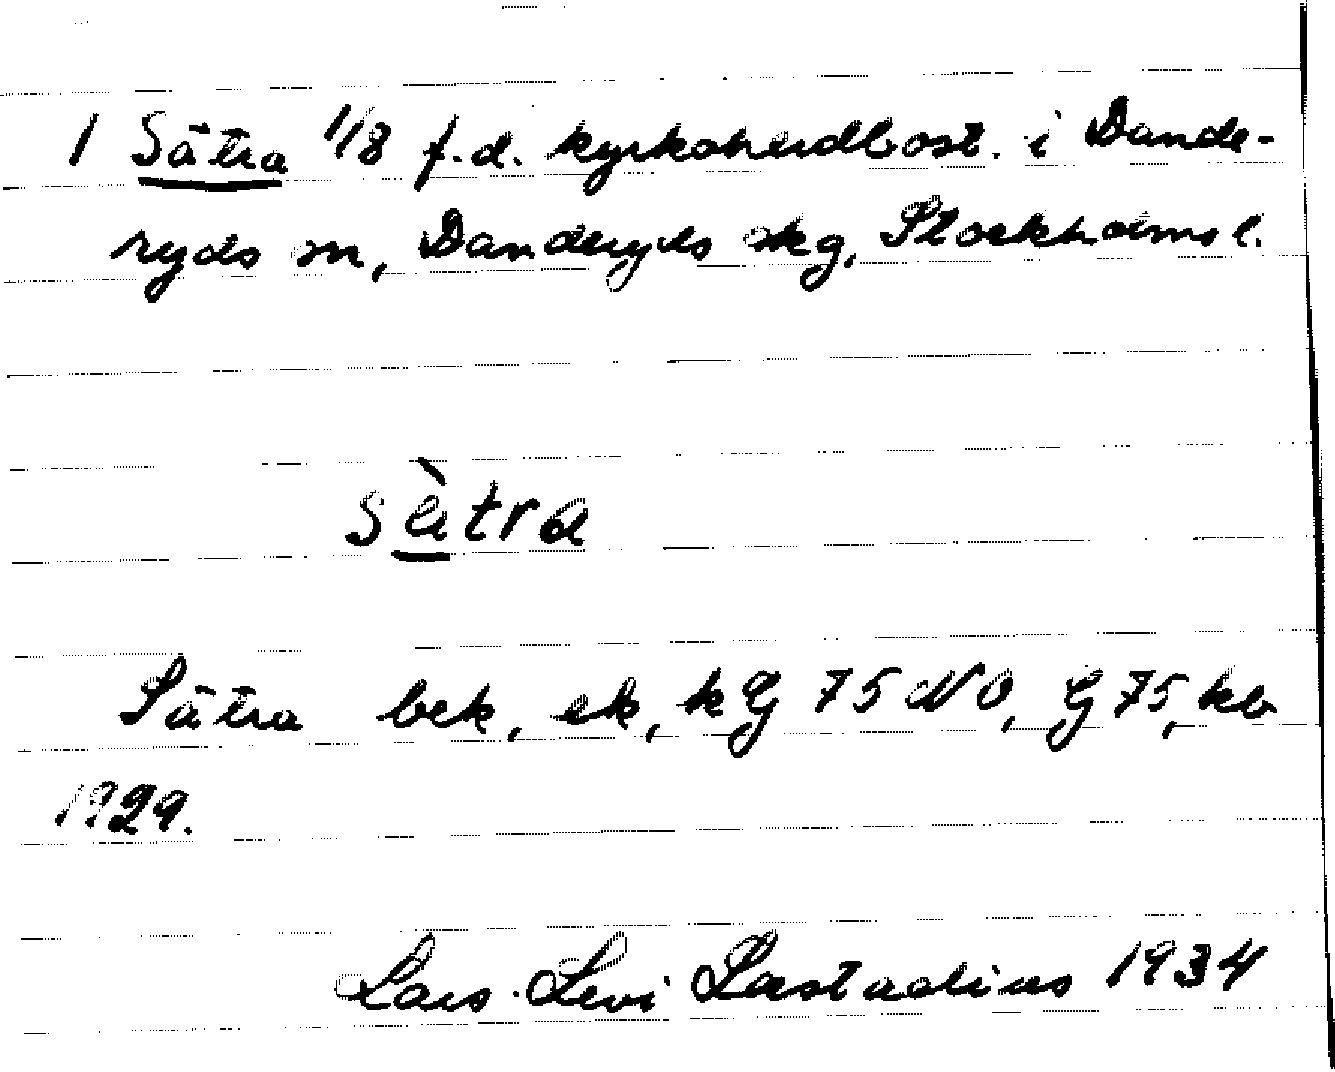 1 Sätra 1/8 f.d. kyrkoherdbost. i Dande-
ryds sn, Danderyds skg, Stockholms l.
sä̀tra
Sätra bek, ek, kG 75 NO, G 75, kb
1929.
Lars-Levi Læstadius 1934